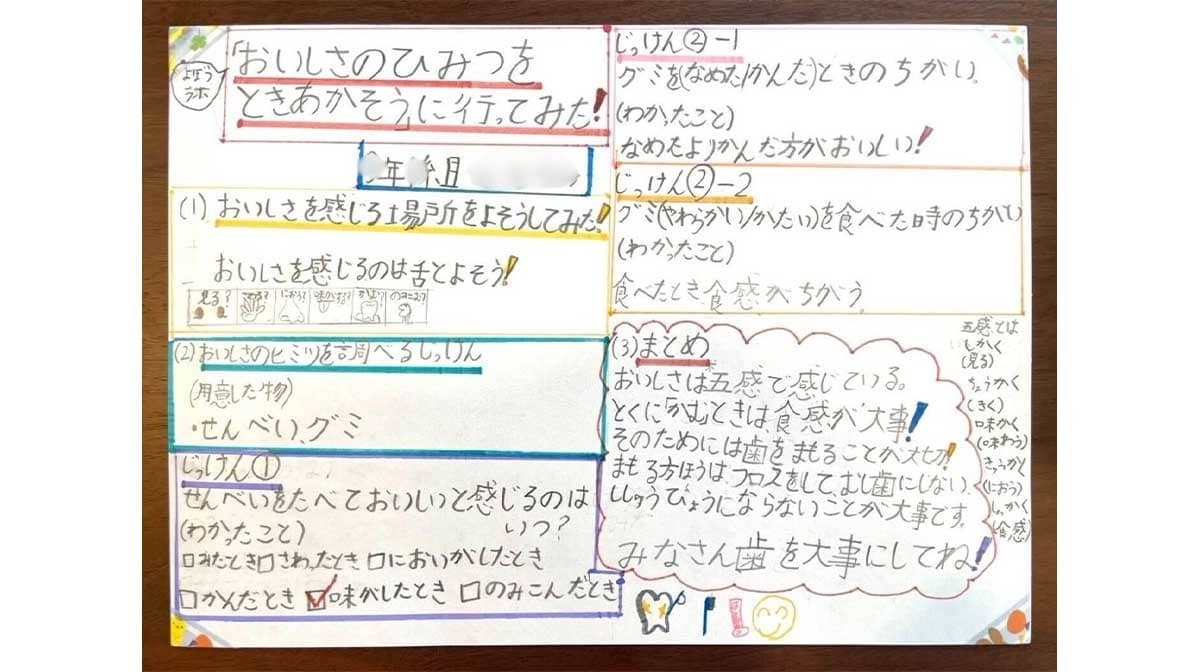 よぼう
ラボ
「おいしさのひみつを
ときあかそう」に行ってみた!
年 組
(1) おいしさを感じる場所をよそうしてみた!
おいしさを感じるのは舌とよそう!
見る?
におう?
(2)おいしさのヒミツを調べるじっけん
(用意した物)
・せんべい、グミ
じっけん①
せんべいをたべておいしいと感じるのは
いつ?
(わかったこと)
□みたとき□さわったとき □においがしたとき
□かんだとき ☑味がしたとき □のみこんだとき
じっけん②-1
グミを(なめた/かんだ)ときのちがい。
(わかったこと)
なめたよりかんだ方がおいしい!
じっけん②-2
グミ(やわらかい/かたい)を食べた時のちがい
(わかったこと)
食べたとき、食感がちがう。
(3)まとめ
おいしさは五感で感じている。
とくに「かむ」ときは、食感が大事!
そのためには歯をまもることが大切!
まもる方ほうは、フロスをして、むし歯にしない、
ししゅうびょうにならないことが大事です。
みなさん歯を大事にしてね!
五感とは
しかく
(見る)
ちょうかく
(きく)
味かく
(味わう)
きゅうかく
(におう)
しょっかく
(食感)